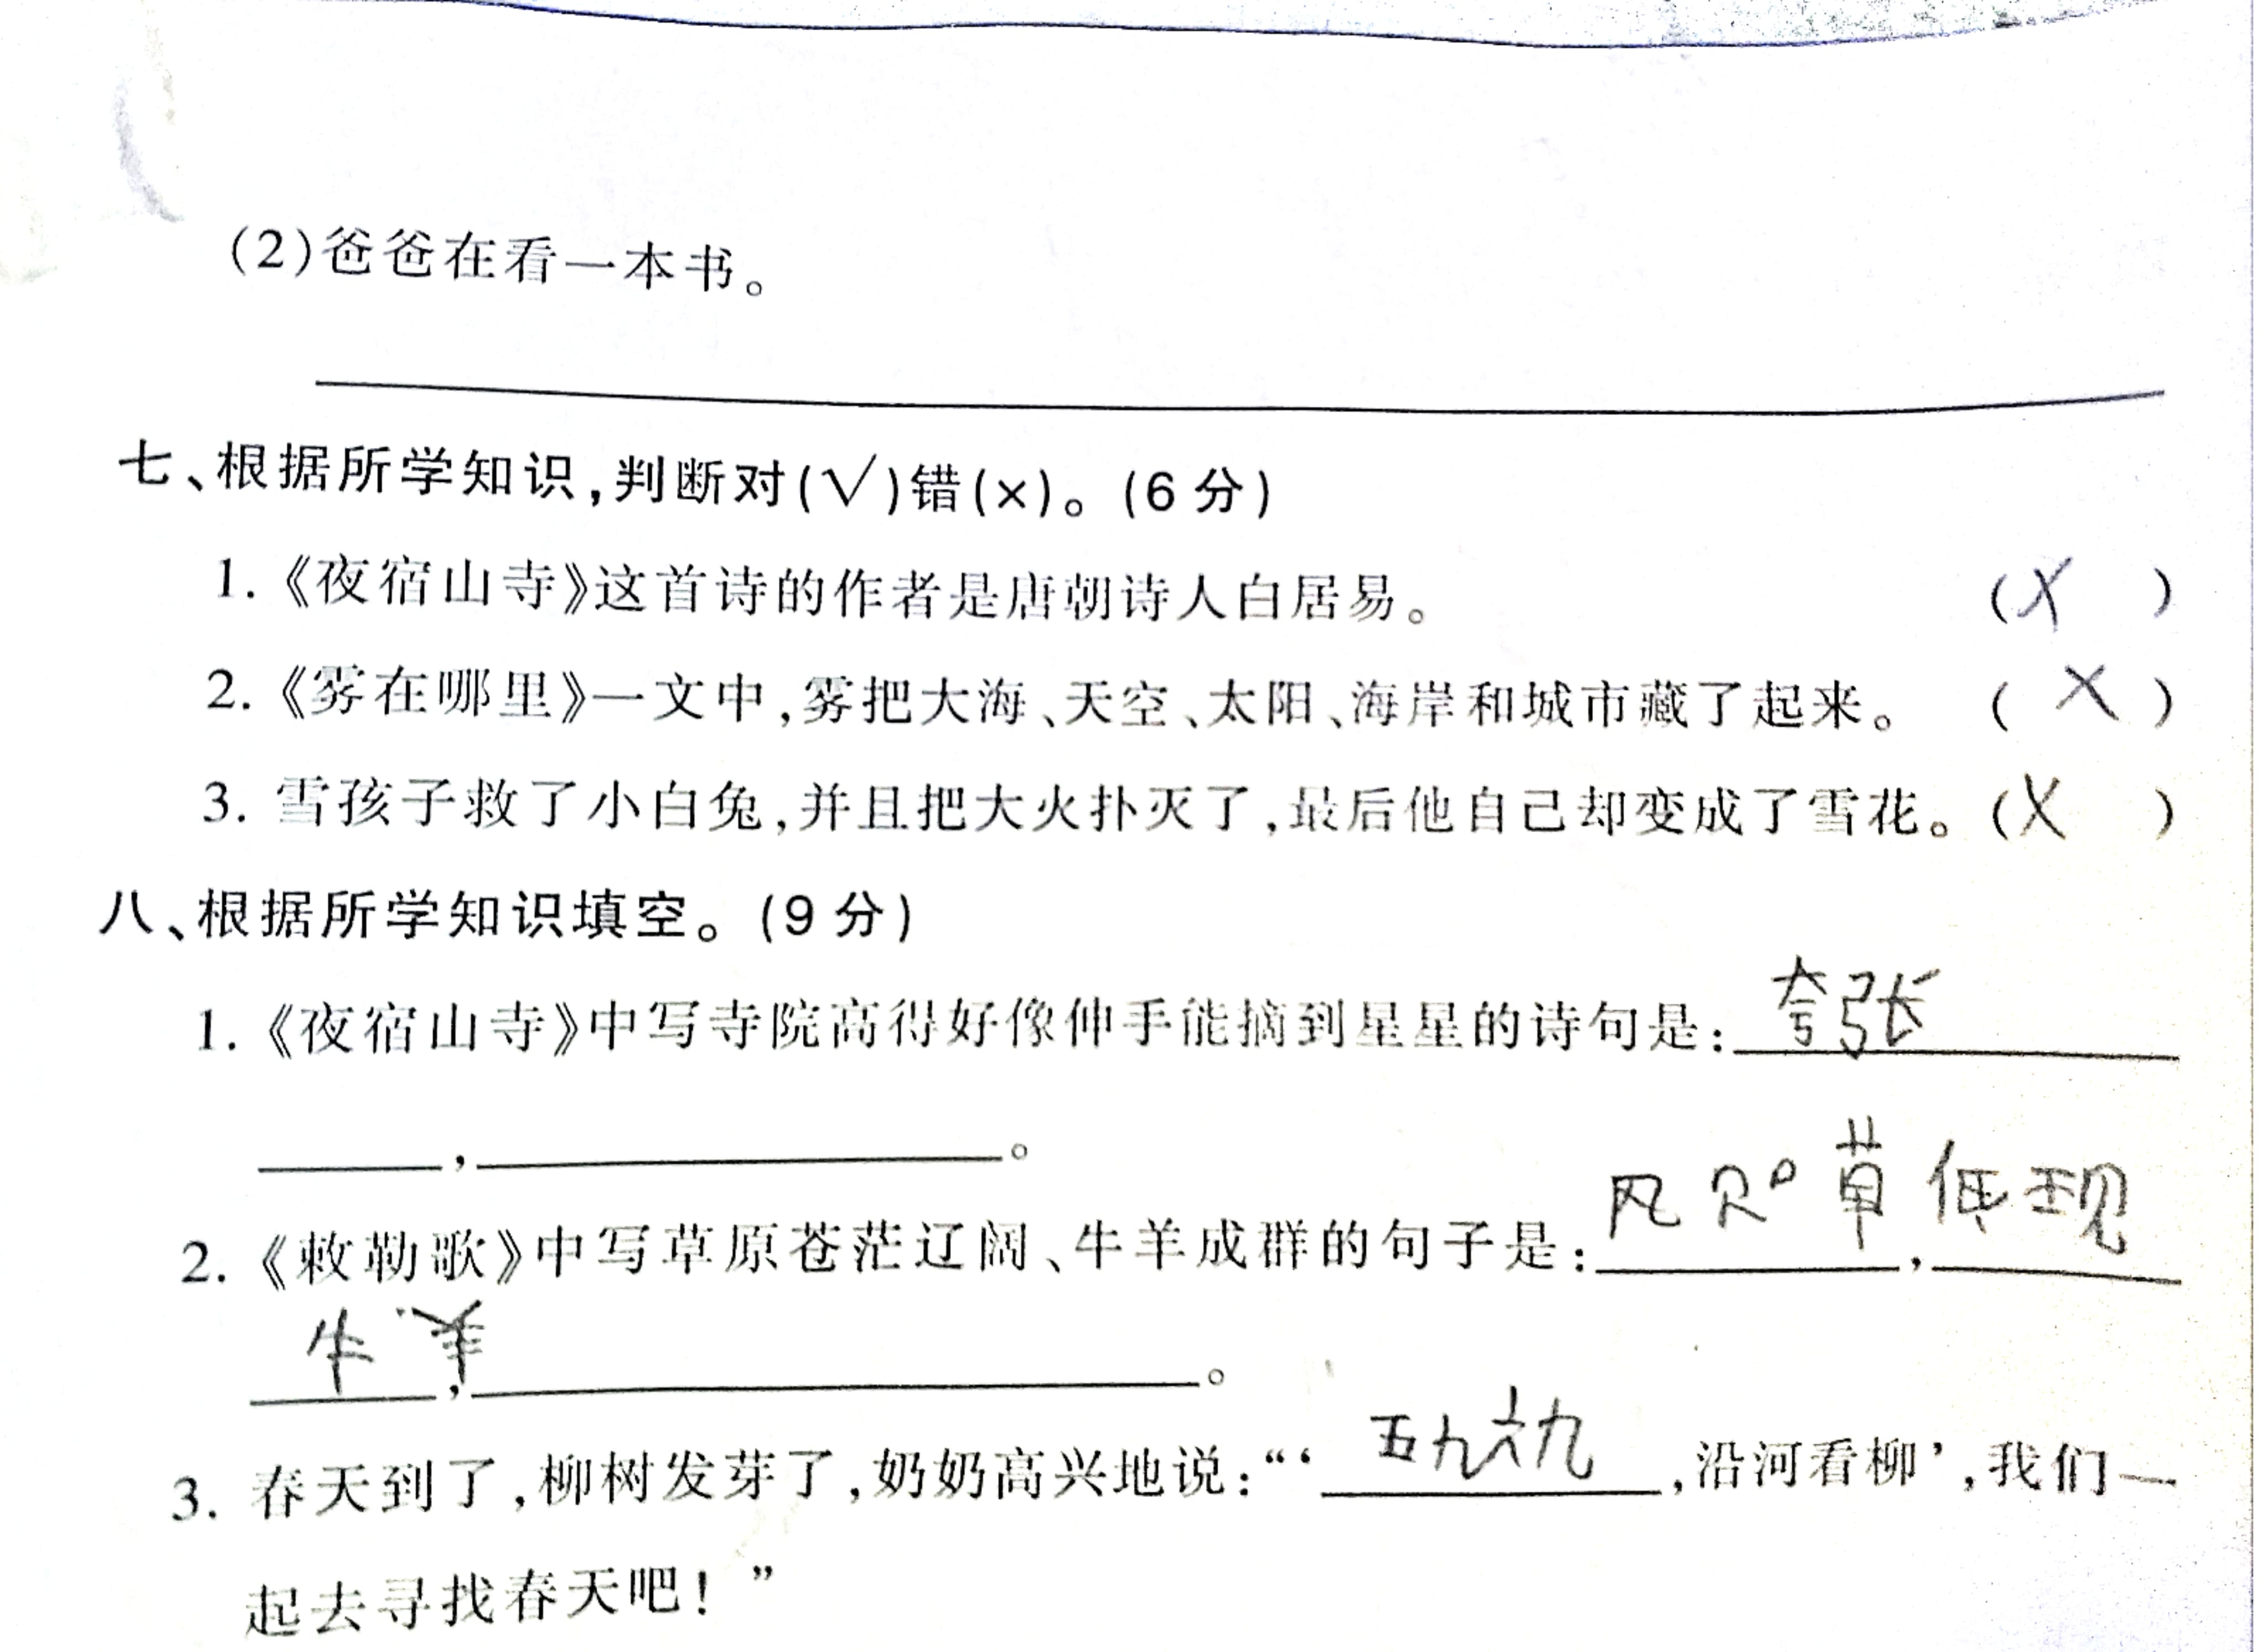 (2)爸爸在看一本书。
七、根据所学知识,判断对(√)错(×)。(6分)
1.《夜宿山寺》这首诗的作者是唐朝诗人白居易。 (X )
2.《雾在哪里》一文中,雾把大海、天空、太阳、海岸和城市藏了起来。 ( X )
3. 雪孩子救了小白兔,并且把大火扑灭了,最后他自己却变成了雪花。 (X )
八、根据所学知识填空。(9分)
1.《夜宿山寺》中写寺院高得好像伸手能摘到星星的诗句是:夸张
,。
2.《敕勒歌》中写草原苍茫辽阔、牛羊成群的句子是:风 草,低现
牛羊,。
3. 春天到了,柳树发芽了,奶奶高兴地说:“‘五九六九,沿河看柳’,我们一
起去寻找春天吧!”